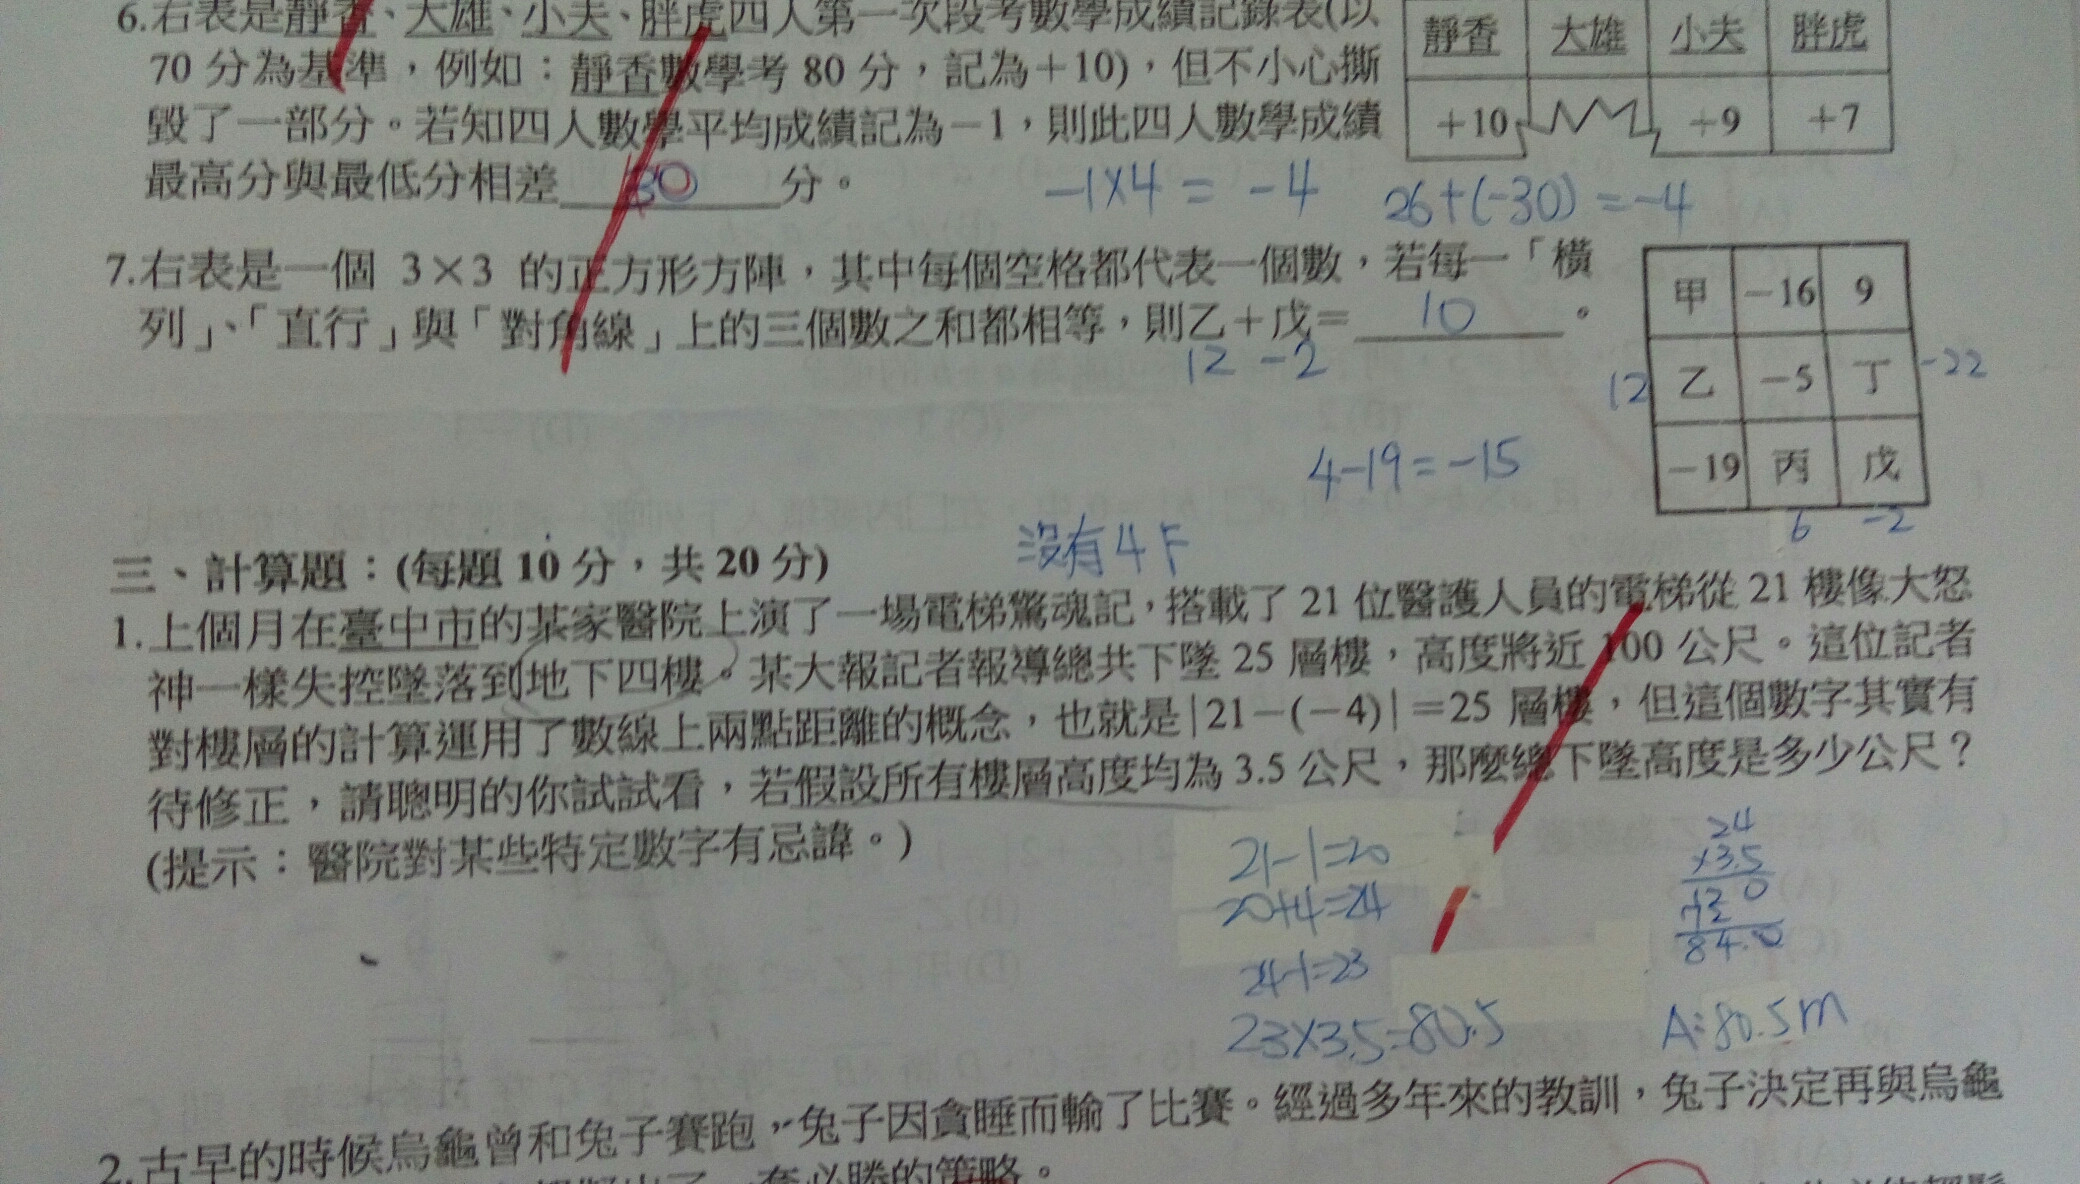 6.右表是靜香、大雄、小夫、胖虎四人第一次段考數學成績記錄表(以
70 分為基準，例如：靜香數學考 80 分，記為＋10)，但不小心撕
毀了一部分。若知四人數學平均成績記為－1，則此四人數學成績
最高分與最低分相差 分。
靜香 大雄 小夫 胖虎
＋10 ＋9 ＋7
－1×4＝ －4
26＋(－30)＝－4
7.右表是一個 3×3 的正方形方陣，其中每個空格都代表一個數，若每一「橫
列」、「直行」與「對角線」上的三個數之和都相等，則乙＋戊＝ 10 。
12 －2
甲 －16 9
12 乙 －5 丁 －22
－19 丙 戊
6 －2
4－19＝－15
沒有4F
三、計算題：(每題 10 分，共 20 分)
1.上個月在臺中市的某家醫院上演了一場電梯驚魂記，搭載了 21 位醫護人員的電梯從 21 樓像大怒
神一樣失控墜落到地下四樓。某大報記者報導總共下墜 25 層樓，高度將近 100 公尺。這位記者
對樓層的計算運用了數線上兩點距離的概念，也就是|21－(－4)|＝25 層樓，但這個數字其實有
待修正，請聰明的你試試看，若假設所有樓層高度均為 3.5 公尺，那麼總下墜高度是多少公尺？
(提示：醫院對某些特定數字有忌諱。)
21－1＝20
20＋4＝24
24－1＝23
23×3.5＝80.5
24
×3.5
12 0
72
84.0
A：80.5m
2.古早的時候烏龜曾和兔子賽跑，兔子因貪睡而輸了比賽。經過多年來的教訓，兔子決定再與烏龜
一套必勝的策略。